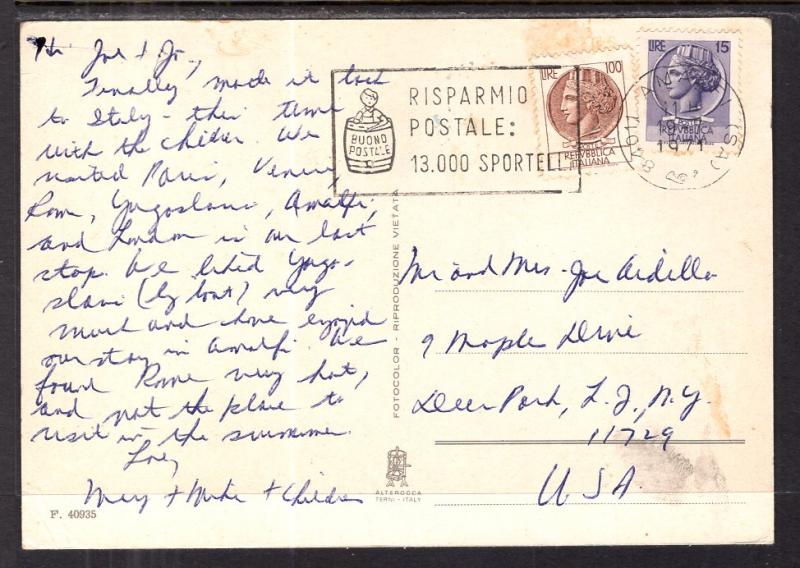 Hi Joe & Jo,
Finally, made it back
to Italy - this time
with the children. We
visited Paris, Venice,
Rome, Yugoslavia, Amalfi,
and London is our last
stop. We liked Yugo-
slavia (by boat) very
much and have enjoyed
our stay in Amalfi. We
found Rome very hot,
and not the place to
visit in the summer.
Love,
Mary + Mike + Children
F. 40935
FOTOCOLOR - RIPRODUZIONE VIETATA
ALTEROCCA
TERNI - ITALY
BUONO
POSTALE
RISPARMIO
POSTALE:
13.000 SPORTELLI
LIRE 100
REPUBBLICA
ITALIANA
LIRE 15
REPUBBLICA
ITALIANA
1971
(SA)
Mr and Mrs - Joe Ardilla
9 Maple Drive
Deer Park, L.I., N.Y.
11729
USA